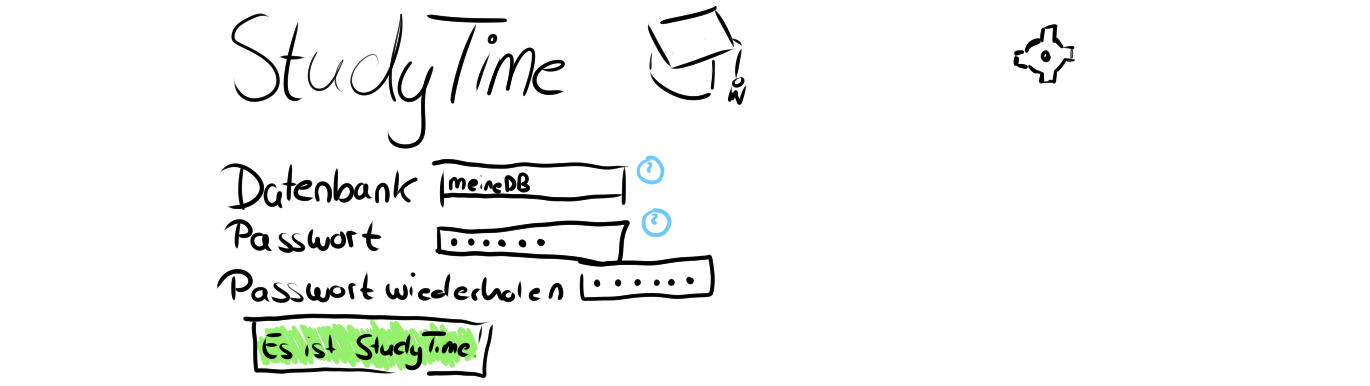 StudyTime
Datenbank meineDB ?
Passwort ?
Passwort wiederholen
Es ist StudyTime